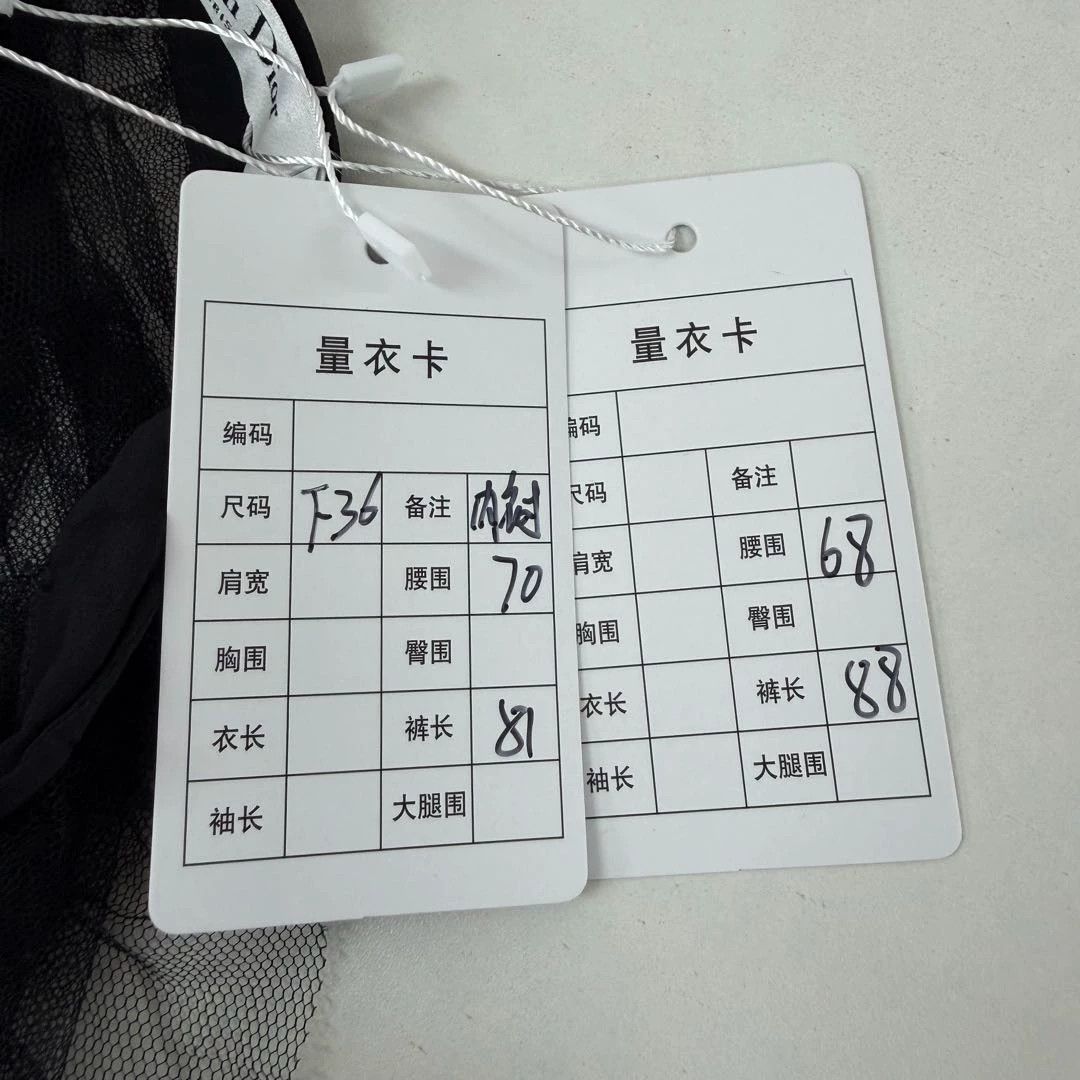 Dior
量衣卡
编码
尺码 F36 备注 内衬
肩宽 腰围 70
胸围 臀围
衣长 裤长 81
袖长 大腿围
量衣卡
编码
尺码 备注
肩宽 腰围 68
胸围 臀围
衣长 裤长 88
袖长 大腿围